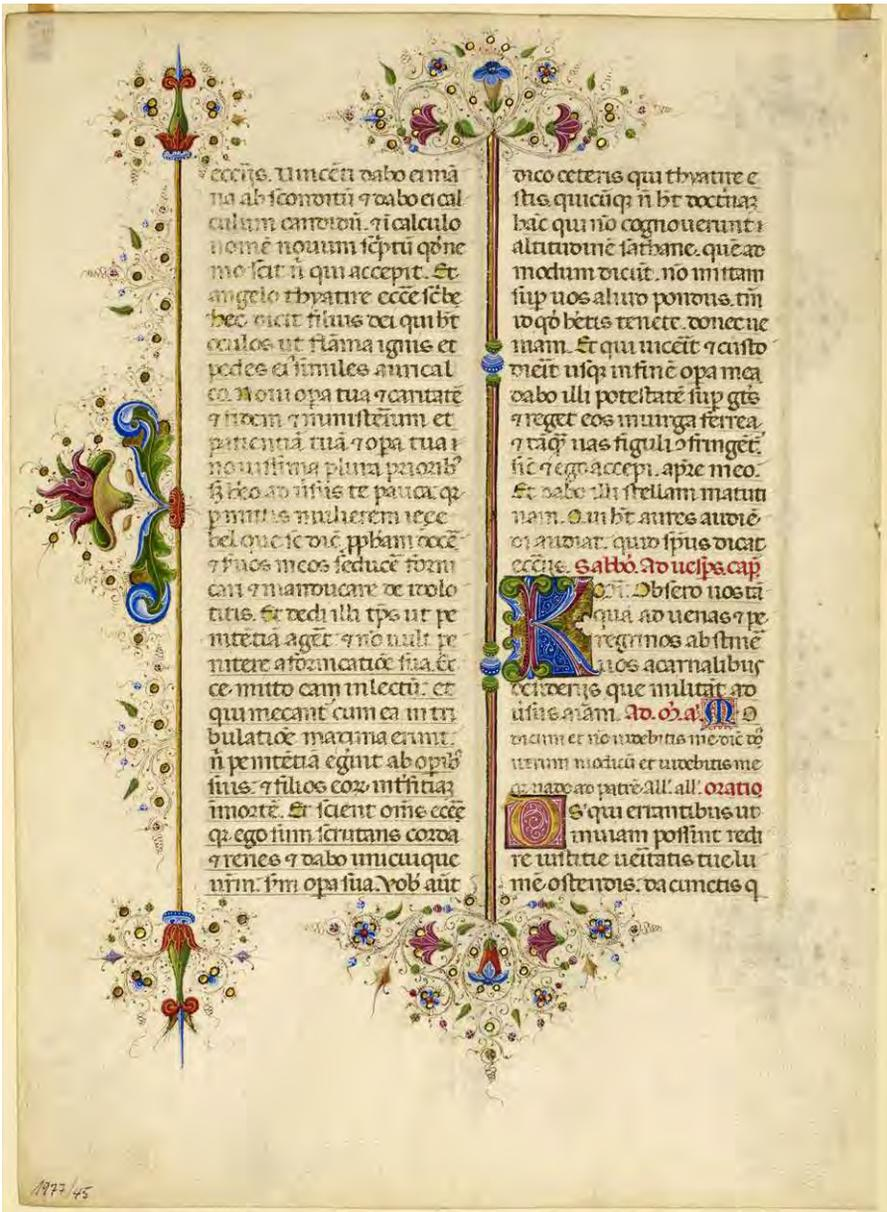 eccl̄iis. Uincēti dabo ei mā
na absconditū ⁊ dabo ei cal
culum candidū. ⁊ ī calculo
nomē novum sc̄ptū qd̄ ne
mo scit n̄ qui accepit. Et
angelo thyatire ecc̄e sc̄be
hec dicit filius dei qui h̄t
oculos ut flāma ignis et
pedes ei similes aurical
co. Noui opa tua ⁊ caritatē
⁊ fidem ⁊ ministerium et
patientiā tuā ⁊ opa tua
nouissima plura priorib'
s̄ h̄eo adūsus te pauca. qr
p̄mittis mulierem ieçe
bel que se dic̄ ꝓph̄am docē
⁊ seducē forni
cari ⁊ manducare de idolo
titis. Et dedi illi tp̄s ut pe
nitētiā aget ⁊ nō uult pe
nitere a fornicatiōe sua. Ec
ce mitto eam in lectū. et
qui mecant' cum ea in tri
bulatiōe maxima erunt
n̄ penitētiā egint ab opib'
suis. ⁊ filios eor intficiā
ī morte. Et scient om̄s ecc̄e
qr ego sum scrutans corda
⁊ renes ⁊ dabo unicuique
ur̄m. s̄m opa sua. Vob' aūt
dico ceteris qui thyatire e
stis. quicūqꝫ n̄ h̄t doctrinā
hāc qui nō cognouerunt
altitudinē sathane. quē ad
modum dicūt. nō mittam
sup uos aliud pondus. tm̄
id qd̄ h̄etis tenete. donec ue
niam. Et qui uicēit ⁊ custo
dieit usqꝫ in finē opa mea
dabo illi potestatē sup gt̄s
⁊ reget eos in uirga ferrea
⁊ tāqꝫ uas figuli ɔfringēt.
sic̄ ⁊ ego accepi. a pr̄e meo.
Et dabo illi stellam matuti
nam. Qui h̄t aures audiē
di audiat. quid sp̄us dicat
eccl̄iis. Sabbō. Ad uesp̄s. cap̄
Kr̄mi. Obsecro uos tā
quā aduenas ⁊ pe
regrinos abstinē
uos a carnalibus
desideriis que militāt ad
ūsus aīam. Ad. m̄. a'. Mo
dicum et nō uidebitis me. dic̄ dō
iterum modicū et uidebitis me
qr uado ad patrē. all'. all'. oratio
Ds' qui errantibus ut
in uiam possint redi
re iustitie ueritatis tue lu
mē ostendis. da cunctis q
1977/45